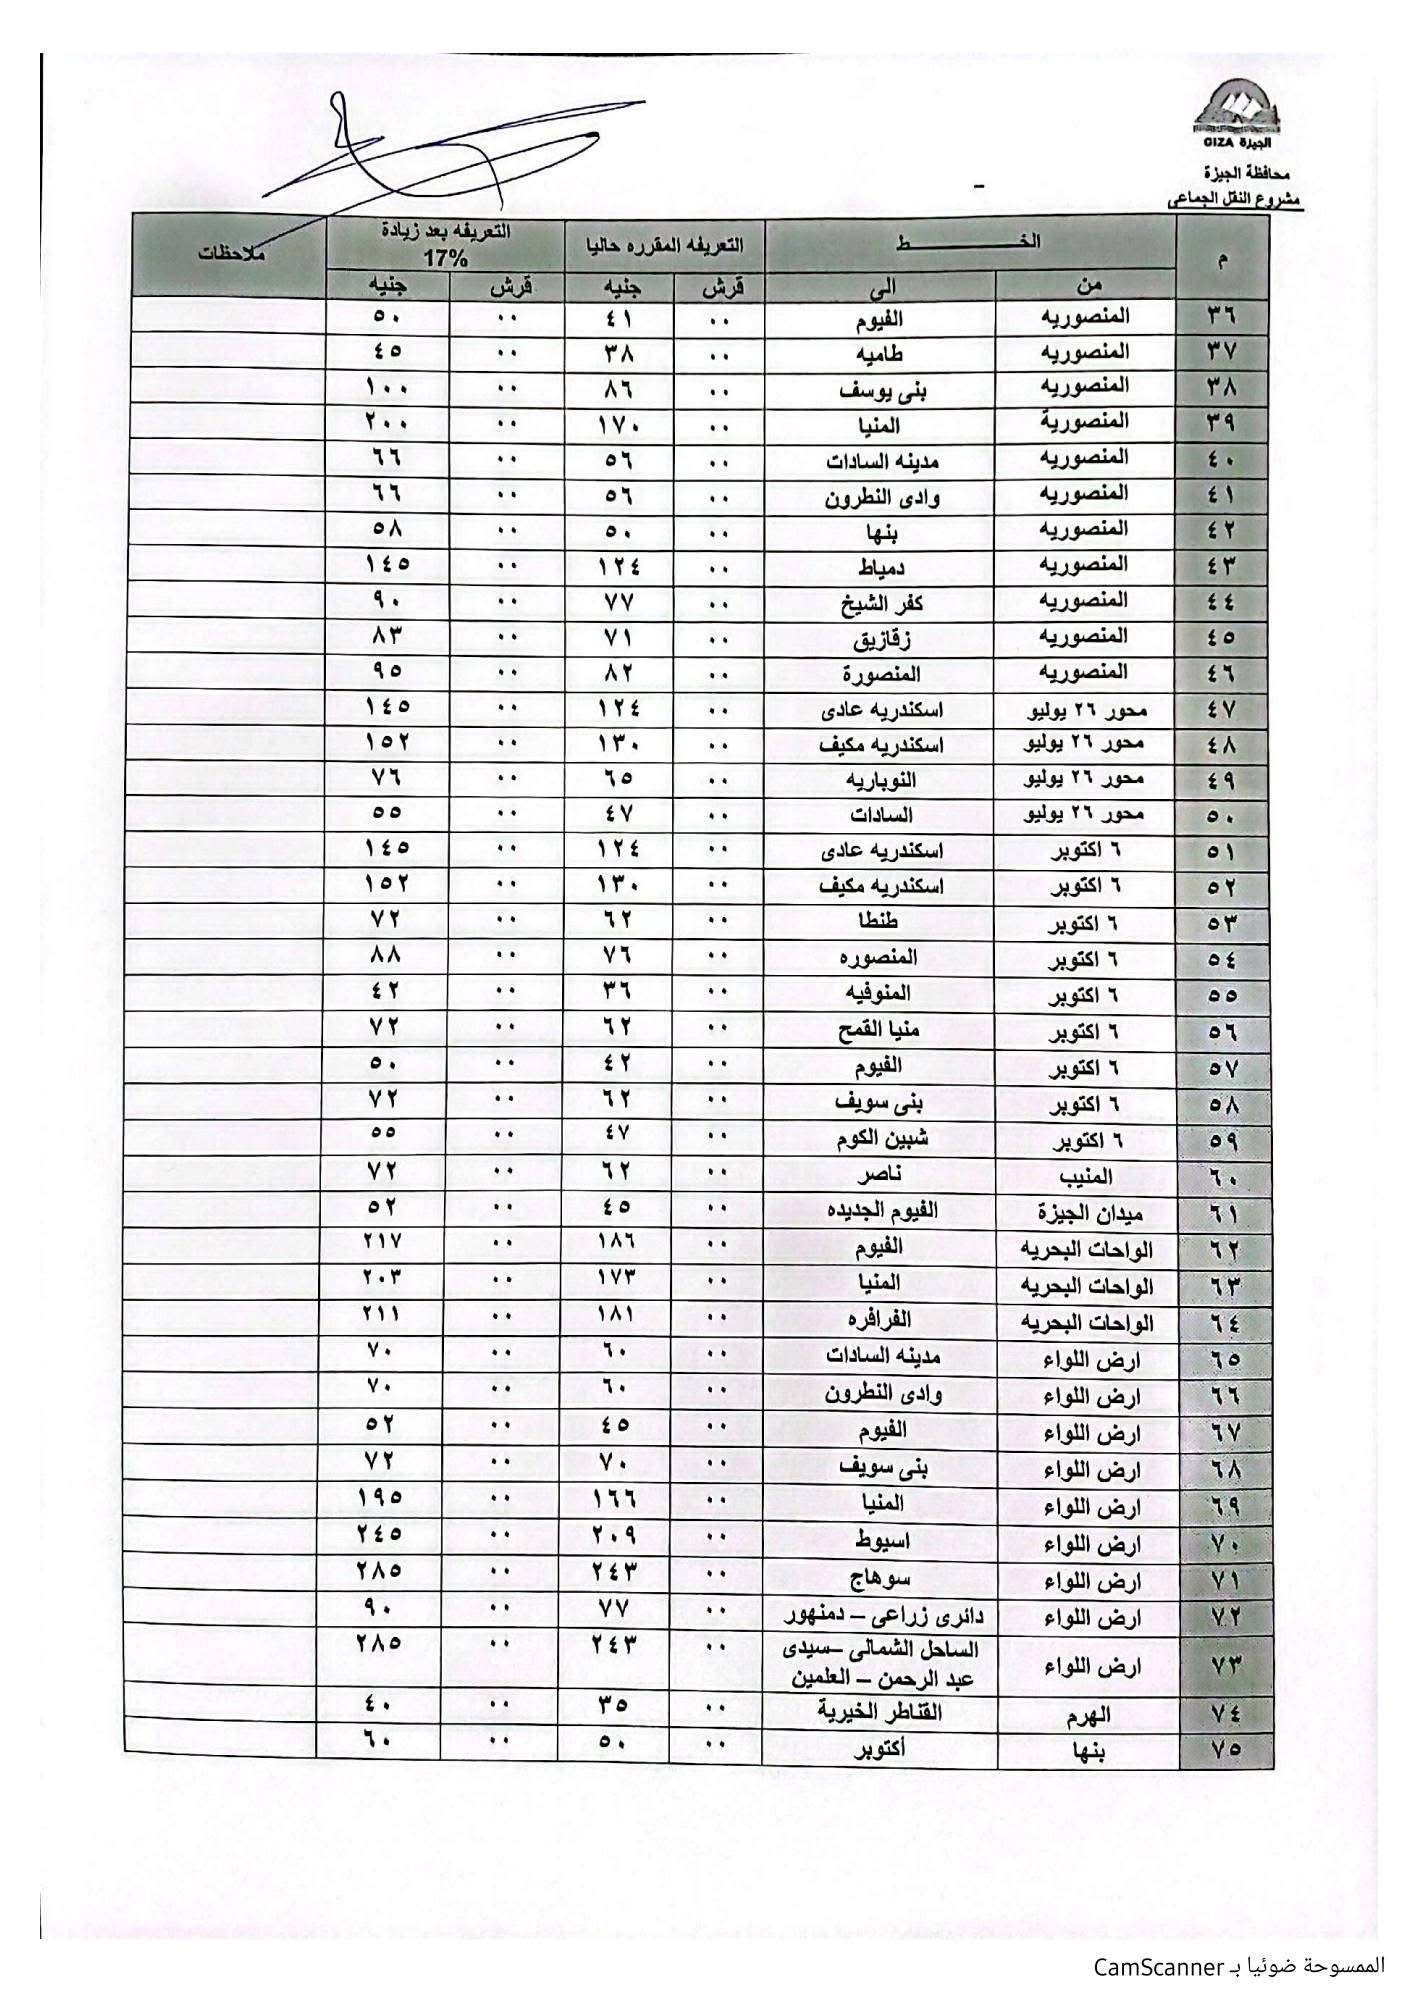 الجيزة GIZA
محافظة الجيزة
مشروع النقل الجماعى
م الخـــــــــط التعريفه المقرره حاليا التعريفه بعد زيادة 17% ملاحظات
من الى قرش جنيه قرش جنيه
٣٦ المنصوريه الفيوم ٠٠ ٤١ ٠٠ ٥٠
٣٧ المنصوريه طاميه ٠٠ ٣٨ ٠٠ ٤٥
٣٨ المنصوريه بنى يوسف ٠٠ ٨٦ ٠٠ ١٠٠
٣٩ المنصورية المنيا ٠٠ ١٧٠ ٠٠ ٢٠٠
٤٠ المنصوريه مدينه السادات ٠٠ ٥٦ ٠٠ ٦٦
٤١ المنصوريه وادى النطرون ٠٠ ٥٦ ٠٠ ٦٦
٤٢ المنصوريه بنها ٠٠ ٥٠ ٠٠ ٥٨
٤٣ المنصوريه دمياط ٠٠ ١٢٤ ٠٠ ١٤٥
٤٤ المنصوريه كفر الشيخ ٠٠ ٧٧ ٠٠ ٩٠
٤٥ المنصوريه زقازيق ٠٠ ٧١ ٠٠ ٨٣
٤٦ المنصوريه المنصورة ٠٠ ٨٢ ٠٠ ٩٥
٤٧ محور ٢٦ يوليو اسكندريه عادى ٠٠ ١٢٤ ٠٠ ١٤٥
٤٨ محور ٢٦ يوليو اسكندريه مكيف ٠٠ ١٣٠ ٠٠ ١٥٢
٤٩ محور ٢٦ يوليو النوباريه ٠٠ ٦٥ ٠٠ ٧٦
٥٠ محور ٢٦ يوليو السادات ٠٠ ٤٧ ٠٠ ٥٥
٥١ ٦ اكتوبر اسكندريه عادى ٠٠ ١٢٤ ٠٠ ١٤٥
٥٢ ٦ اكتوبر اسكندريه مكيف ٠٠ ١٣٠ ٠٠ ١٥٢
٥٣ ٦ اكتوبر طنطا ٠٠ ٦٢ ٠٠ ٧٢
٥٤ ٦ اكتوبر المنصوره ٠٠ ٧٦ ٠٠ ٨٨
٥٥ ٦ اكتوبر المنوفيه ٠٠ ٣٦ ٠٠ ٤٢
٥٦ ٦ اكتوبر منيا القمح ٠٠ ٦٢ ٠٠ ٧٢
٥٧ ٦ اكتوبر الفيوم ٠٠ ٤٢ ٠٠ ٥٠
٥٨ ٦ اكتوبر بنى سويف ٠٠ ٦٢ ٠٠ ٧٢
٥٩ ٦ اكتوبر شبين الكوم ٠٠ ٤٧ ٠٠ ٥٥
٦٠ المنيب ناصر ٠٠ ٦٢ ٠٠ ٧٢
٦١ ميدان الجيزة الفيوم الجديده ٠٠ ٤٥ ٠٠ ٥٢
٦٢ الواحات البحريه الفيوم ٠٠ ١٨٦ ٠٠ ٢١٧
٦٣ الواحات البحريه المنيا ٠٠ ١٧٣ ٠٠ ٢٠٣
٦٤ الواحات البحريه الفرافره ٠٠ ١٨١ ٠٠ ٢١١
٦٥ ارض اللواء مدينه السادات ٠٠ ٦٠ ٠٠ ٧٠
٦٦ ارض اللواء وادى النطرون ٠٠ ٦٠ ٠٠ ٧٠
٦٧ ارض اللواء الفيوم ٠٠ ٤٥ ٠٠ ٥٢
٦٨ ارض اللواء بنى سويف ٠٠ ٧٠ ٠٠ ٧٢
٦٩ ارض اللواء المنيا ٠٠ ١٦٦ ٠٠ ١٩٥
٧٠ ارض اللواء اسيوط ٠٠ ٢٠٩ ٠٠ ٢٤٥
٧١ ارض اللواء سوهاج ٠٠ ٢٤٣ ٠٠ ٢٨٥
٧٢ ارض اللواء دائرى زراعى – دمنهور ٠٠ ٧٧ ٠٠ ٩٠
٧٣ ارض اللواء الساحل الشمالى –سيدى عبد الرحمن – العلمين ٠٠ ٢٤٣ ٠٠ ٢٨٥
٧٤ الهرم القناطر الخيرية ٠٠ ٣٥ ٠٠ ٤٠
٧٥ بنها أكتوبر ٠٠ ٥٠ ٠٠ ٦٠
الممسوحة ضوئيا بـ CamScanner